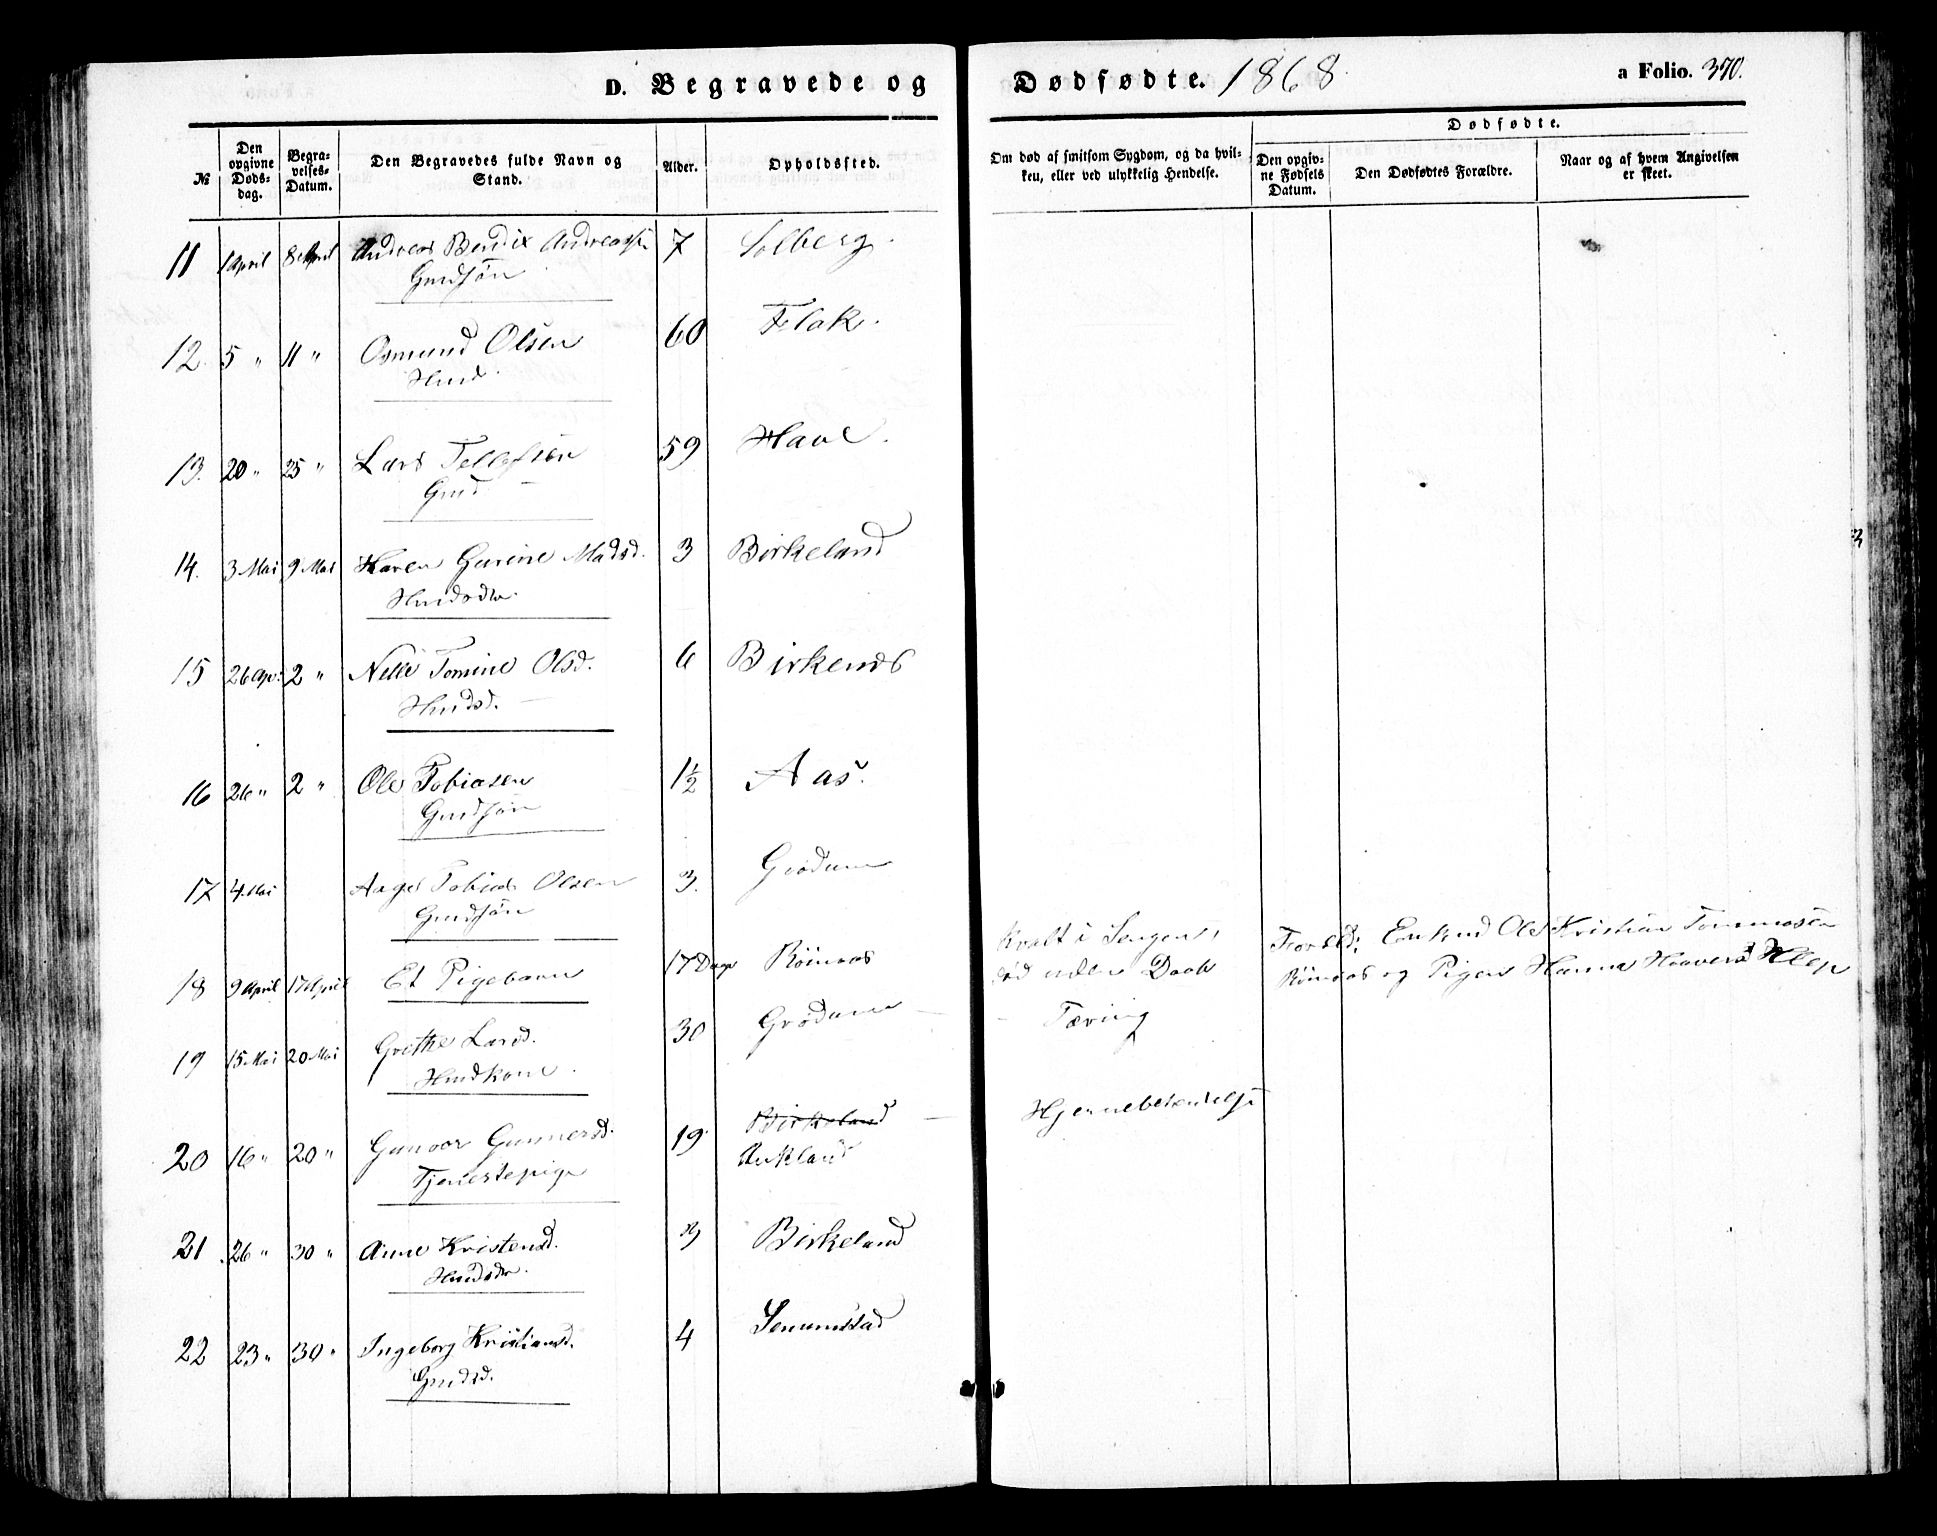 D. Begravede og Dødfødte. 1868. a Folio. 370.
№
Den opgivne Dødsdag.
Begravelses-Datum.
Den Begravedes fulde Navn og Stand.
Alder.
Opholdssted.
Om død af smitsom Sygdom, og da hvilken, eller ved ulykkelig Hendelse.
Dødfødte.
Den opgivne Fødsels Datum.
Den Dødfødtes Forældre.
Naar og af hvem Angivelsen er skeet.
11 1 April 8 April Andreas Bendix Andreassen 7 Solberg.
Gmdsøn
12. 5 " 11 " Osmund Olsen 60 Flak.
Hmd.
13. 20 " 25 " Lars Tellefsen 59 Have.
Gmd
14. 3 Mai 9 Mai Karen Gurine Madsd. 3 Birkeland
Hmdsdtr.
15 26 Apr. 2 " Nelle Tomine Olsd. 6
Hmdsd.
16 26 " 2 " Ole Tobiasen 1½ Aas.
Gmdsøn
17 4 Mai Aagel Tobias Olsen 3. Grødum
Gmdsøn
18 9 April 17 April Et Pigebarn 17 Dage Røinaas Kvalt i Sengen, død uden Daab Foræld: Enkmd Ole Kristian Tommasen Røinaas og Pigen Hanna
19 15 Mai 20 Mai Grethe Larsd. 30 Grødum - Tæring
Hmdkone.
20 16 " 20 " Gunvor Gunnersd. 19. Birkeland - Hjernebetændelse
Tjenestepige Aukland
21 26 " 30 " Anne Kristensd. 3 Birkeland
Hmdsdtr.
22 23 " 30 " Ingeborg Kristiansd. 4 Senumstad
Gmdsd.